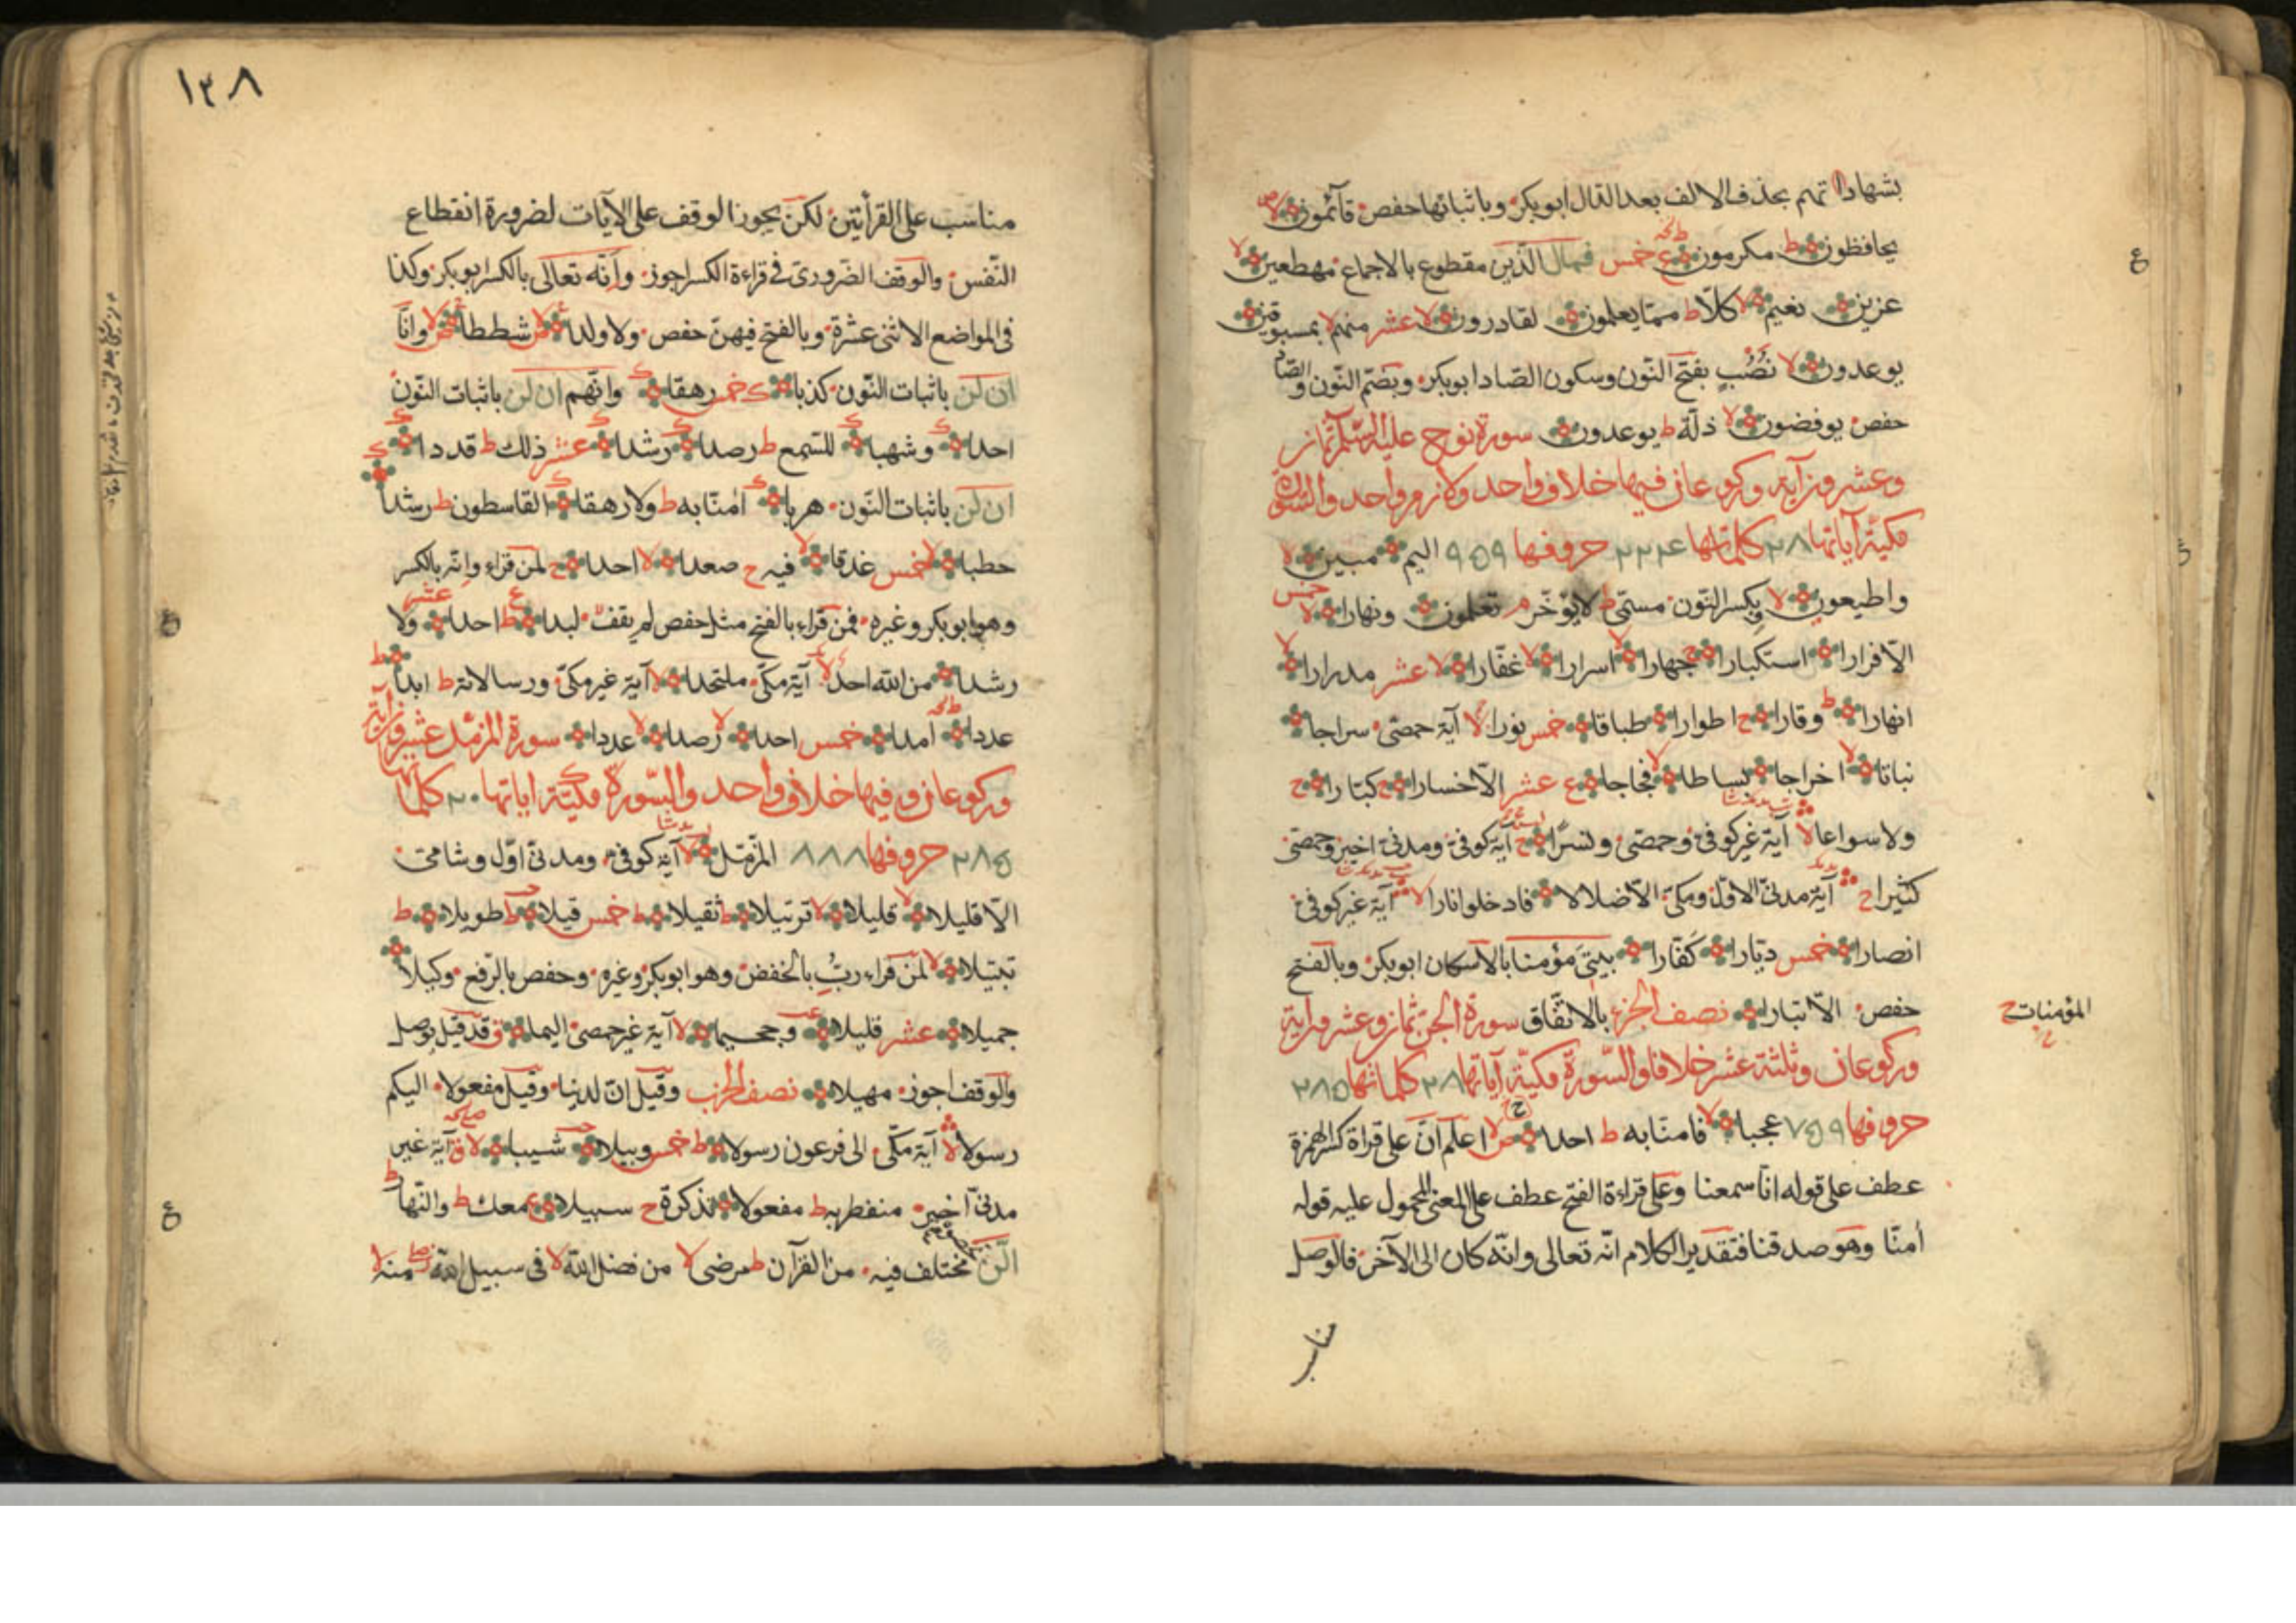 بشهاداتهم بحذف الالف بعد الدال ابوبكر وباثباتها حفص قآئمون لا
يحافظون ط مكرمون ع خمس فمال الّذين مقطوع بالاجماع مهطعين لا
عزين نعيم لا كلّا ط ممّا يعلمون لقادرون لا عشر منهم لا بمسبوقين
يوعدون لا نَصُبٍ بفتح النّون وسكون الصّاد ابوبكر وبضمّ النّون والصّاد
حفص يوفضون لا ذلّة ط يوعدون سورة نوح عليه السّلم ثمان
وعشرون آية وركوعان فيها خلاف واحد ولازم واحد والسّورة
مكيّة آياتها ٢٨ كلماتها ٢٢٤ حروفها ٩٥٩ اليم مبين لا
واطيعون لا وبكسر النّون مسمّى ط لا يؤخّر م تعلمون ونهارا لا خمس
الّا فرارا استكبارا ج جهارا لا اسرارا لا غفّارا لا عشر مدرارا لا
انهارا ط وقارا ج اطوارا طباقا خمس نورا لا آية حمصىّ سراجا
نباتا لا اخراجا بساطا لا فجاجا ع عشر الّا خسارا ج كبّارا ج
ولا سواعا لا آية غير كوفىّ وحمصىّ ونسرًا ج آية كوفىّ ومدنىّ اخير وحمصىّ
كثيرا ج آية مدنىّ الاوّل ومكىّ الّا ضلالا فادخلوا نارا لا آية غير كوفىّ
انصارا خمس ديّارا كفّارا بيتىَ مؤمنا بالاسكان ابوبكر وبالفتح
المؤمنات ح
حفص الّا تبارا نصف الجزء بالاتّفاق سورة الجن ثمان وعشرون آية
وركوعان وثلثة عشر خلافا والسّورة مكيّة آياتها ٢٨ كلماتها ٢٨٥
حروفها ٧٥٩ عجبا لا فامنّا به ط احدا لا اعلم انّ على قراة كسر الهمزة
عطف على قوله انّا سمعنا وعلى قراءة الفتح عطف على المعنى المحمول عليه قوله
اٰمنّا وهو صدقنا فتقدير الكلام انّه تعالى وانّه كان الى الآخر فالوصل
مناسب
١٣٨
مناسب على القرأتين لكن يجوز الوقف على الآيات لضرورة انقطاع
النّفس والوقف الضّرورىّ فى قراءة الكسر اجوز وانّه تعالى بالكسر ابوبكر وكذا
فى المواضع الاثنى عشرة وبالفتح فيهنّ حفص ولا ولدا شططا وانّا
ان لن باثبات النّون كذبا خمس رهقا وانّهم ان لن باثبات النّون
احدا وشهبا للسّمع ط رصدا رشدا عشر ذلك ط قددا
ان لن باثبات النّون هربا اٰمنّا به ط ولا رهقا القاسطون ط رشدا
حطبا لا خمس غدقا لا فيه ج صعدا لا احدا ج لمن قراء وانّه بالكسر
وهو ابوبكر وغيره فمن قراء بالفتح مثل حفص لم يقف لبدا ط ع احدا عشر ولا
رشدا من الله احد لا آية مكّىّ ملتحدا لا آية غير مكىّ ورسالاته ط ابدا ط
عددا امدا خمس احدا لا رصدا لا عددا سورة المزمّل عشرون آية
وركوعان وفيها خلاف واحد والسّورة مكيّة اياتها ٢٠ كلماتها
٢٨٥ حروفها ٨٨٨ المزّمّل لا آية كوفىّ ومدنىّ اوّل وشامىّ
الّا قليلا لا قليلا لا ترتيلا ط ثقيلا ط خمس قيلا ط طويلا ط
تبتيلا لا لمن قراء ربِّ بالخفض وهو ابوبكر وغيره وحفص بالرّفع وكيلا
جميلا عشر قليلا وجحيما لا آية غير حمصىّ اليما ق قد قيل بوصل
والوقف اجوز مهيلا نصف الحزب وقيل انّ لدينا وقيل مفعولا اليكم
رسولا لا آية مكّىّ الى فرعون رسولا ط خمس وبيلا شيبا لا ق آية غير
مدنىّ اخير منفطر به ط مفعولا تذكرة ج سبيلا ع معك ط والنّهار ط
الّن مختلف فيه من القرآن ط مرضى لا من فضل الله لا فى سبيل الله منه لا